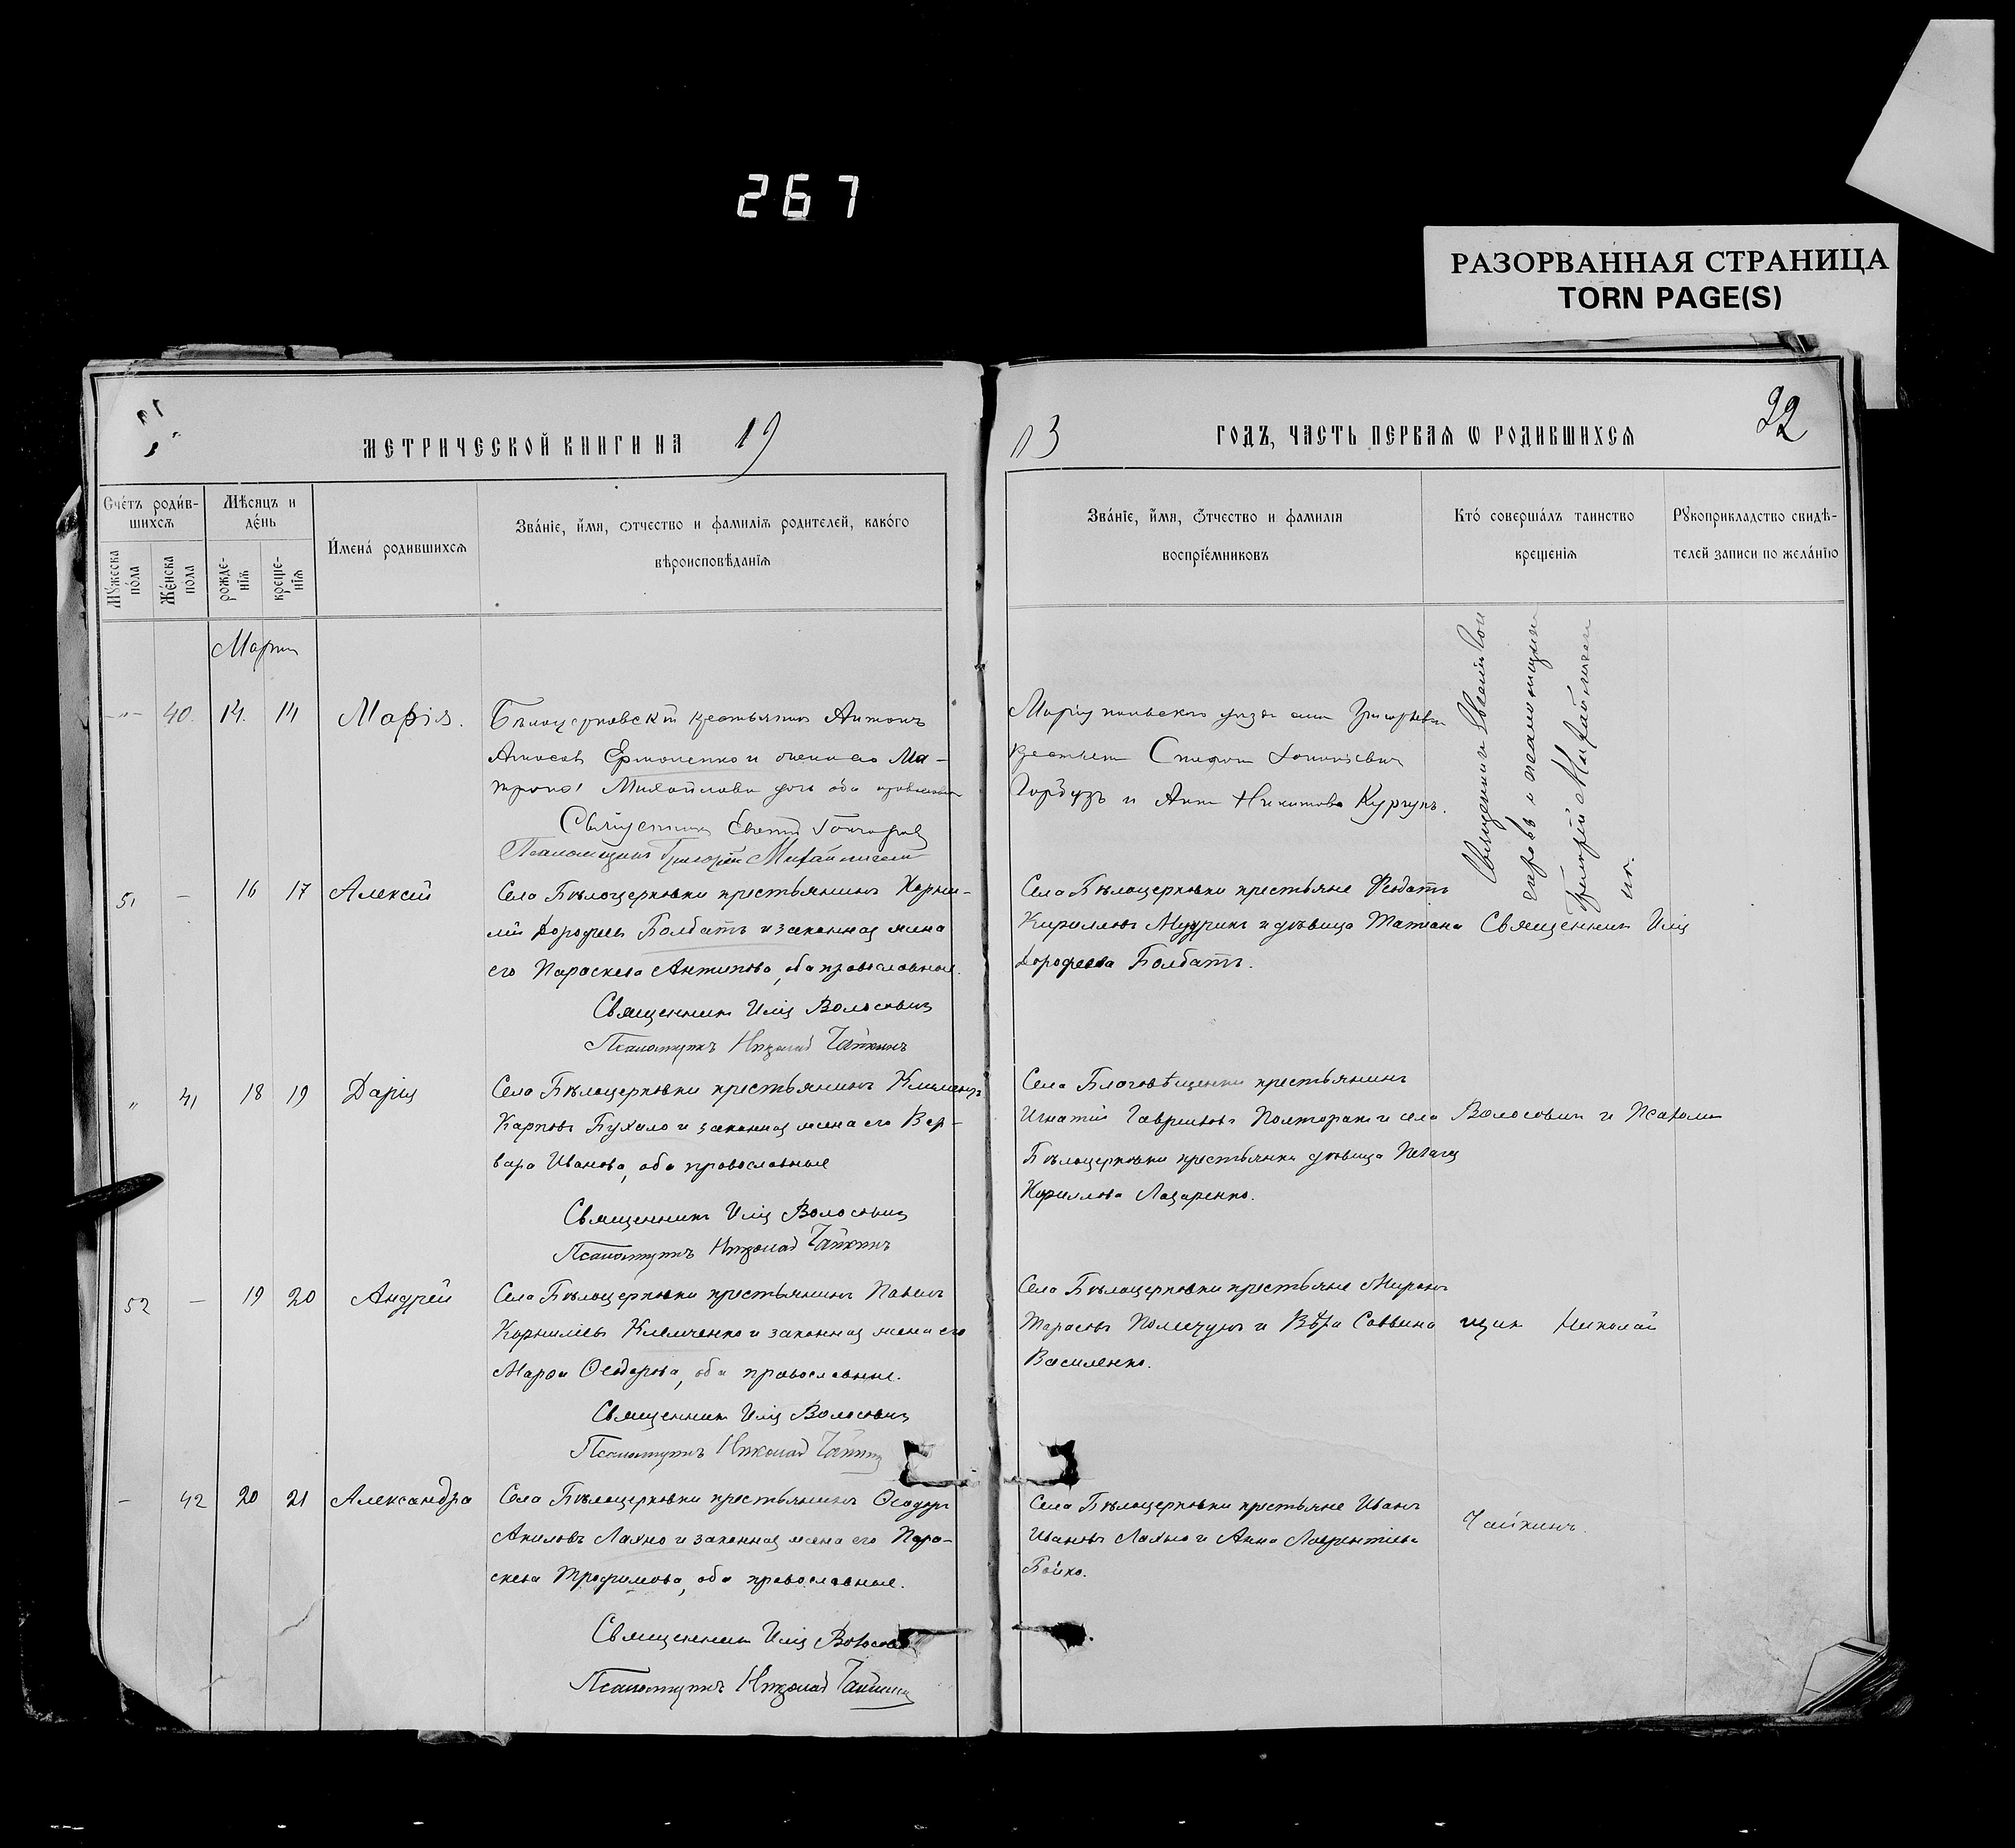 267
РАЗОРВАННАЯ СТРАНИЦА
TORN PAGE(S)
МЕТРИЧЕСКОЙ КНИГИ НА 19
13 ГОДЪ, ЧАСТЬ ПЕРВАЯ Ѡ РОДИВШИХСЯ
32
Счétъ родив-
шихся
Мѣсяцъ и
дéнь
Мужеска
пóла
Жéнска
пола
рожде-
нія
креще-
нія
Имена́ родившихся
Зва́ніе, и́мя, ѻтчество и фамилія родителей, како́го
вѣроисповѣданія
Зва́ніе, и́мя, ѻтчество и фамилія
воспріе́мниковъ
Кто́ соверша́лъ таинство
крещенія
Рукоприкладство свидѣ-
телей записи по жела́нію
Мартъ
40. 14. 14 Марія.
Бѣлоцерковскій крестьянинъ Антонъ
Ермоленко и жена его Ма-
трона Михайлова оба православные
Священникъ Евгеній Гончаровъ
Псаломщикъ Григорій Михайличенко
Маріупольскаго уѣзда
Горбузъ и Анна Никитова Кургунъ.
Священникъ Евгеній Гон
чаровъ и псаломщикъ
Григорій Михайличен
ко.
51 — 16 17 Алексѣй
Села Бѣлоцерковки крестьянинъ Корни-
лій Дорофеевъ Болбатъ и законная жена
его Параскева Антипова, оба православные.
Священникъ Илія Волосовичъ
Псаломщикъ Николай Чайкинъ
Села Бѣлоцерковки крестьяне Федотъ
Кирилловъ Мудрикъ и дѣвица Татіана
Дорофеева Болбатъ.
Священникъ Илія
" 41 18 19 Дарія
Села Бѣлоцерковки крестьянинъ Климентъ
Карповъ Бухало и законная жена его Вар-
вара Иванова, оба православные
Священникъ Илія Волосовичъ
Псаломщикъ Николай Чайкинъ
Села Благовѣщенки крестьянинъ
Игнатій Гавриловъ Полторакъ и села
Бѣлоцерковки крестьянка дѣвица Пелагея
Кириллова Лазаренко.
Волосовичъ и Псалом
52 — 19 20 Андрей
Села Бѣлоцерковки крестьянинъ Павелъ
Корниліевъ Клименко и законная жена его
Марѳа Ѳеодорова, оба православные.
Священникъ Илія Волосовичъ
Псаломщикъ Николай Чайкинъ
Села Бѣлоцерковки крестьяне Миронъ
Тарасовъ и Вѣра Саввина
Василенко.
щикъ Николай
— 42 20 21 Александра
Села Бѣлоцерковки крестьянинъ Ѳеодоръ
Акиловъ Лахно и законная жена его Пара-
скева Трофимова, оба православные.
Священникъ Илія Волосов
Псаломщикъ Николай Чайкинъ
Села Бѣлоцерковки крестьяне Иванъ
Ивановъ Лахно и Анна Лаврентіева
Бойко.
Чайкинъ.